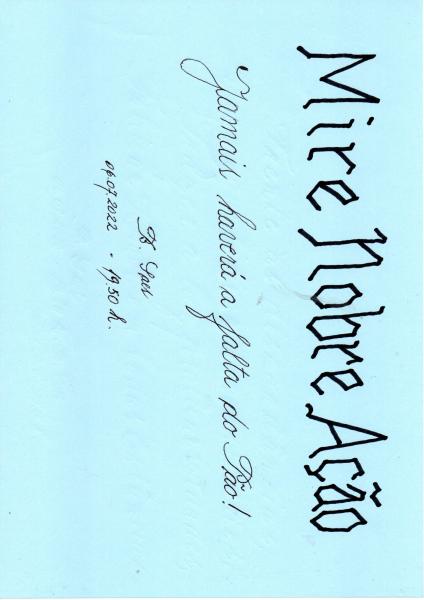 Mire Nobre Ação
Jamais haverá a falta do Pão!
06.07.2022 - 19.50 h.